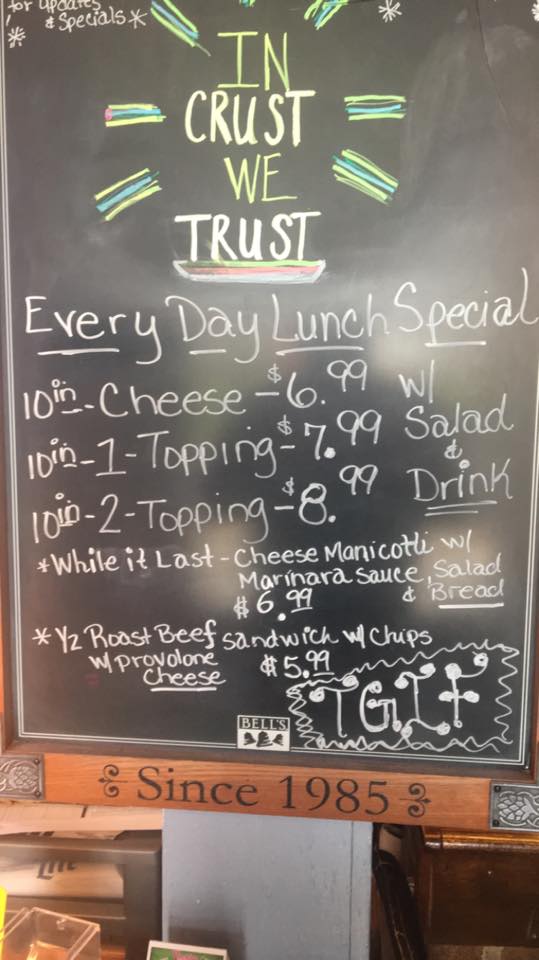 for updates
& Specials *
IN
CRUST
WE
TRUST
Every Day Lunch Special
10in - Cheese - $6.99 w/
10in - 1 - Topping - $7.99 Salad
&
10in - 2 - Topping - $8.99 Drink
*While it Last - Cheese Manicotti w/
Marinara Sauce, Salad
$6.99 & Bread
* 1/2 Roast Beef Sandwich w/ Chips
w/ provolone $5.99
Cheese
TGIF
BELL'S
Since 1985
Lite